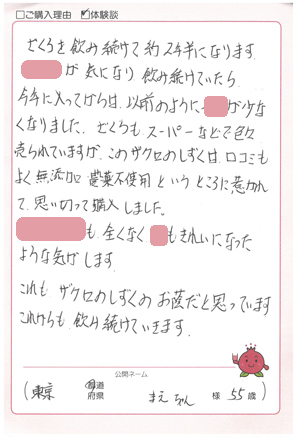 □ご購入理由 ☑体験談
ざくろを飲み続けて約2年半になります。
が気になり飲み続けていたら、
今年に入ってからは、以前のように が少な
くなりました。ざくろも スーパーなどで色々
売られていますが、このザクロのしずくは、口コミも
よく無添加で農薬不使用というところに惹かれ
て、思い切って購入しました。
も、全くなく もきれいになった
ような気がします。
これも ザクロのしずくのお蔭だと思っています
これからも飲み続けていきます。
公開ネーム
(東京 都道府県 まえちゃん 様 55歳)